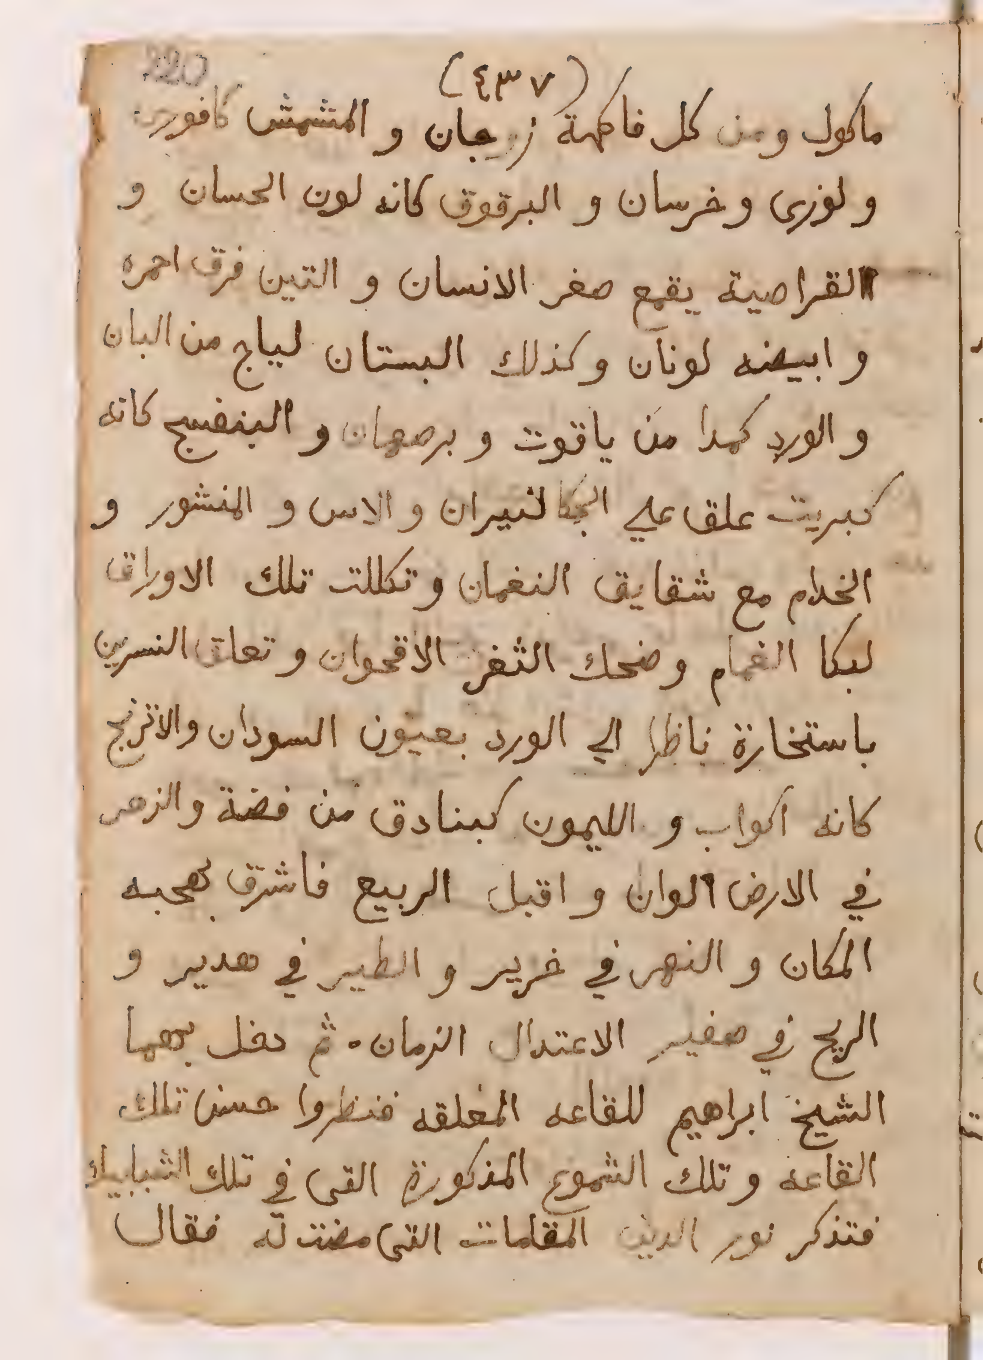 220
(٤٣٧)
ماكول ومن كل فاكهة زوجان و المشمش كافورى
و لوزى و خرسان و البرقوق كانه لون الحسان و
القراصية يقمع صغر الانسان و التين فرق احمره
و ابيضه لونان و كذلك البستان لياج من البان
و الورد كمدا من ياقوت و برصهمان و البنفسج كانه
كبريت علق علي النيران و الاس و المنشور و
الخدام مع شقايق النغمان و تكللت تلك الاوراق
لبكا الغمام و ضحك الثغر الاقحوان و تعلق النسرين
باستخارة ناظرا الي الورد بعيون السودان والاترنج
كانه اكواب و الليمون كبنادق من فضة والزهر
في الارض الوان و اقبل الربيع فاشرق بهجبه
المكان و النهر في خرير و الطير في هدير و
الريح في صفير الاعتدال الزمان . ثم دخل بهما
الشيخ ابراهيم للقاعه المغلقه فنظروا حسن تلك
القاعه و تلك الشموع المذكورة التى في تلك الشبابيك
فتذكر نور الدين المقامات التى مضت له فقال